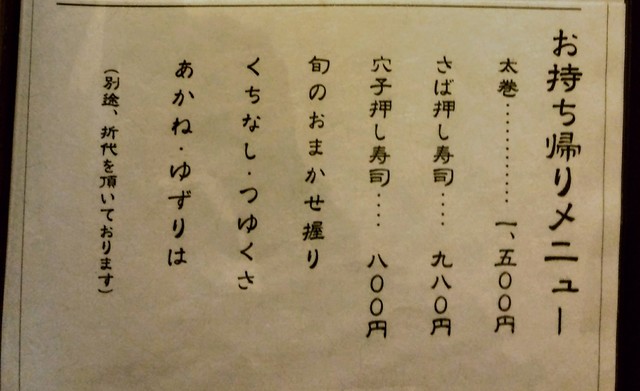 お持ち帰りメニュー
太巻…………一、五〇〇円
さば押し寿司…‥九八〇円
穴子押し寿司…‥八〇〇円
旬のおまかせ握り
くちなし・つゆくさ
あかね・ゆずりは
(別途、折代を頂いております)